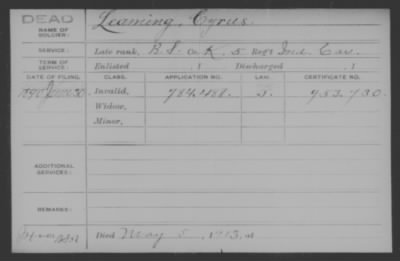 DEAD
NAME OF SOLDIER: Leaming, Cyrus.
SERVICE: Late rank, B.S. Co. K, 5 Reg't Ind. Cav.
TERM OF SERVICE: Enlisted , 1 Discharged , 1
DATE OF FILING. CLASS. APPLICATION NO. LAW. CERTIFICATE NO.
1890 June 30 Invalid, 784,488. 953.730
Widow,
Minor,
ADDITIONAL SERVICES:
REMARKS:
Died May 5, 1913, at